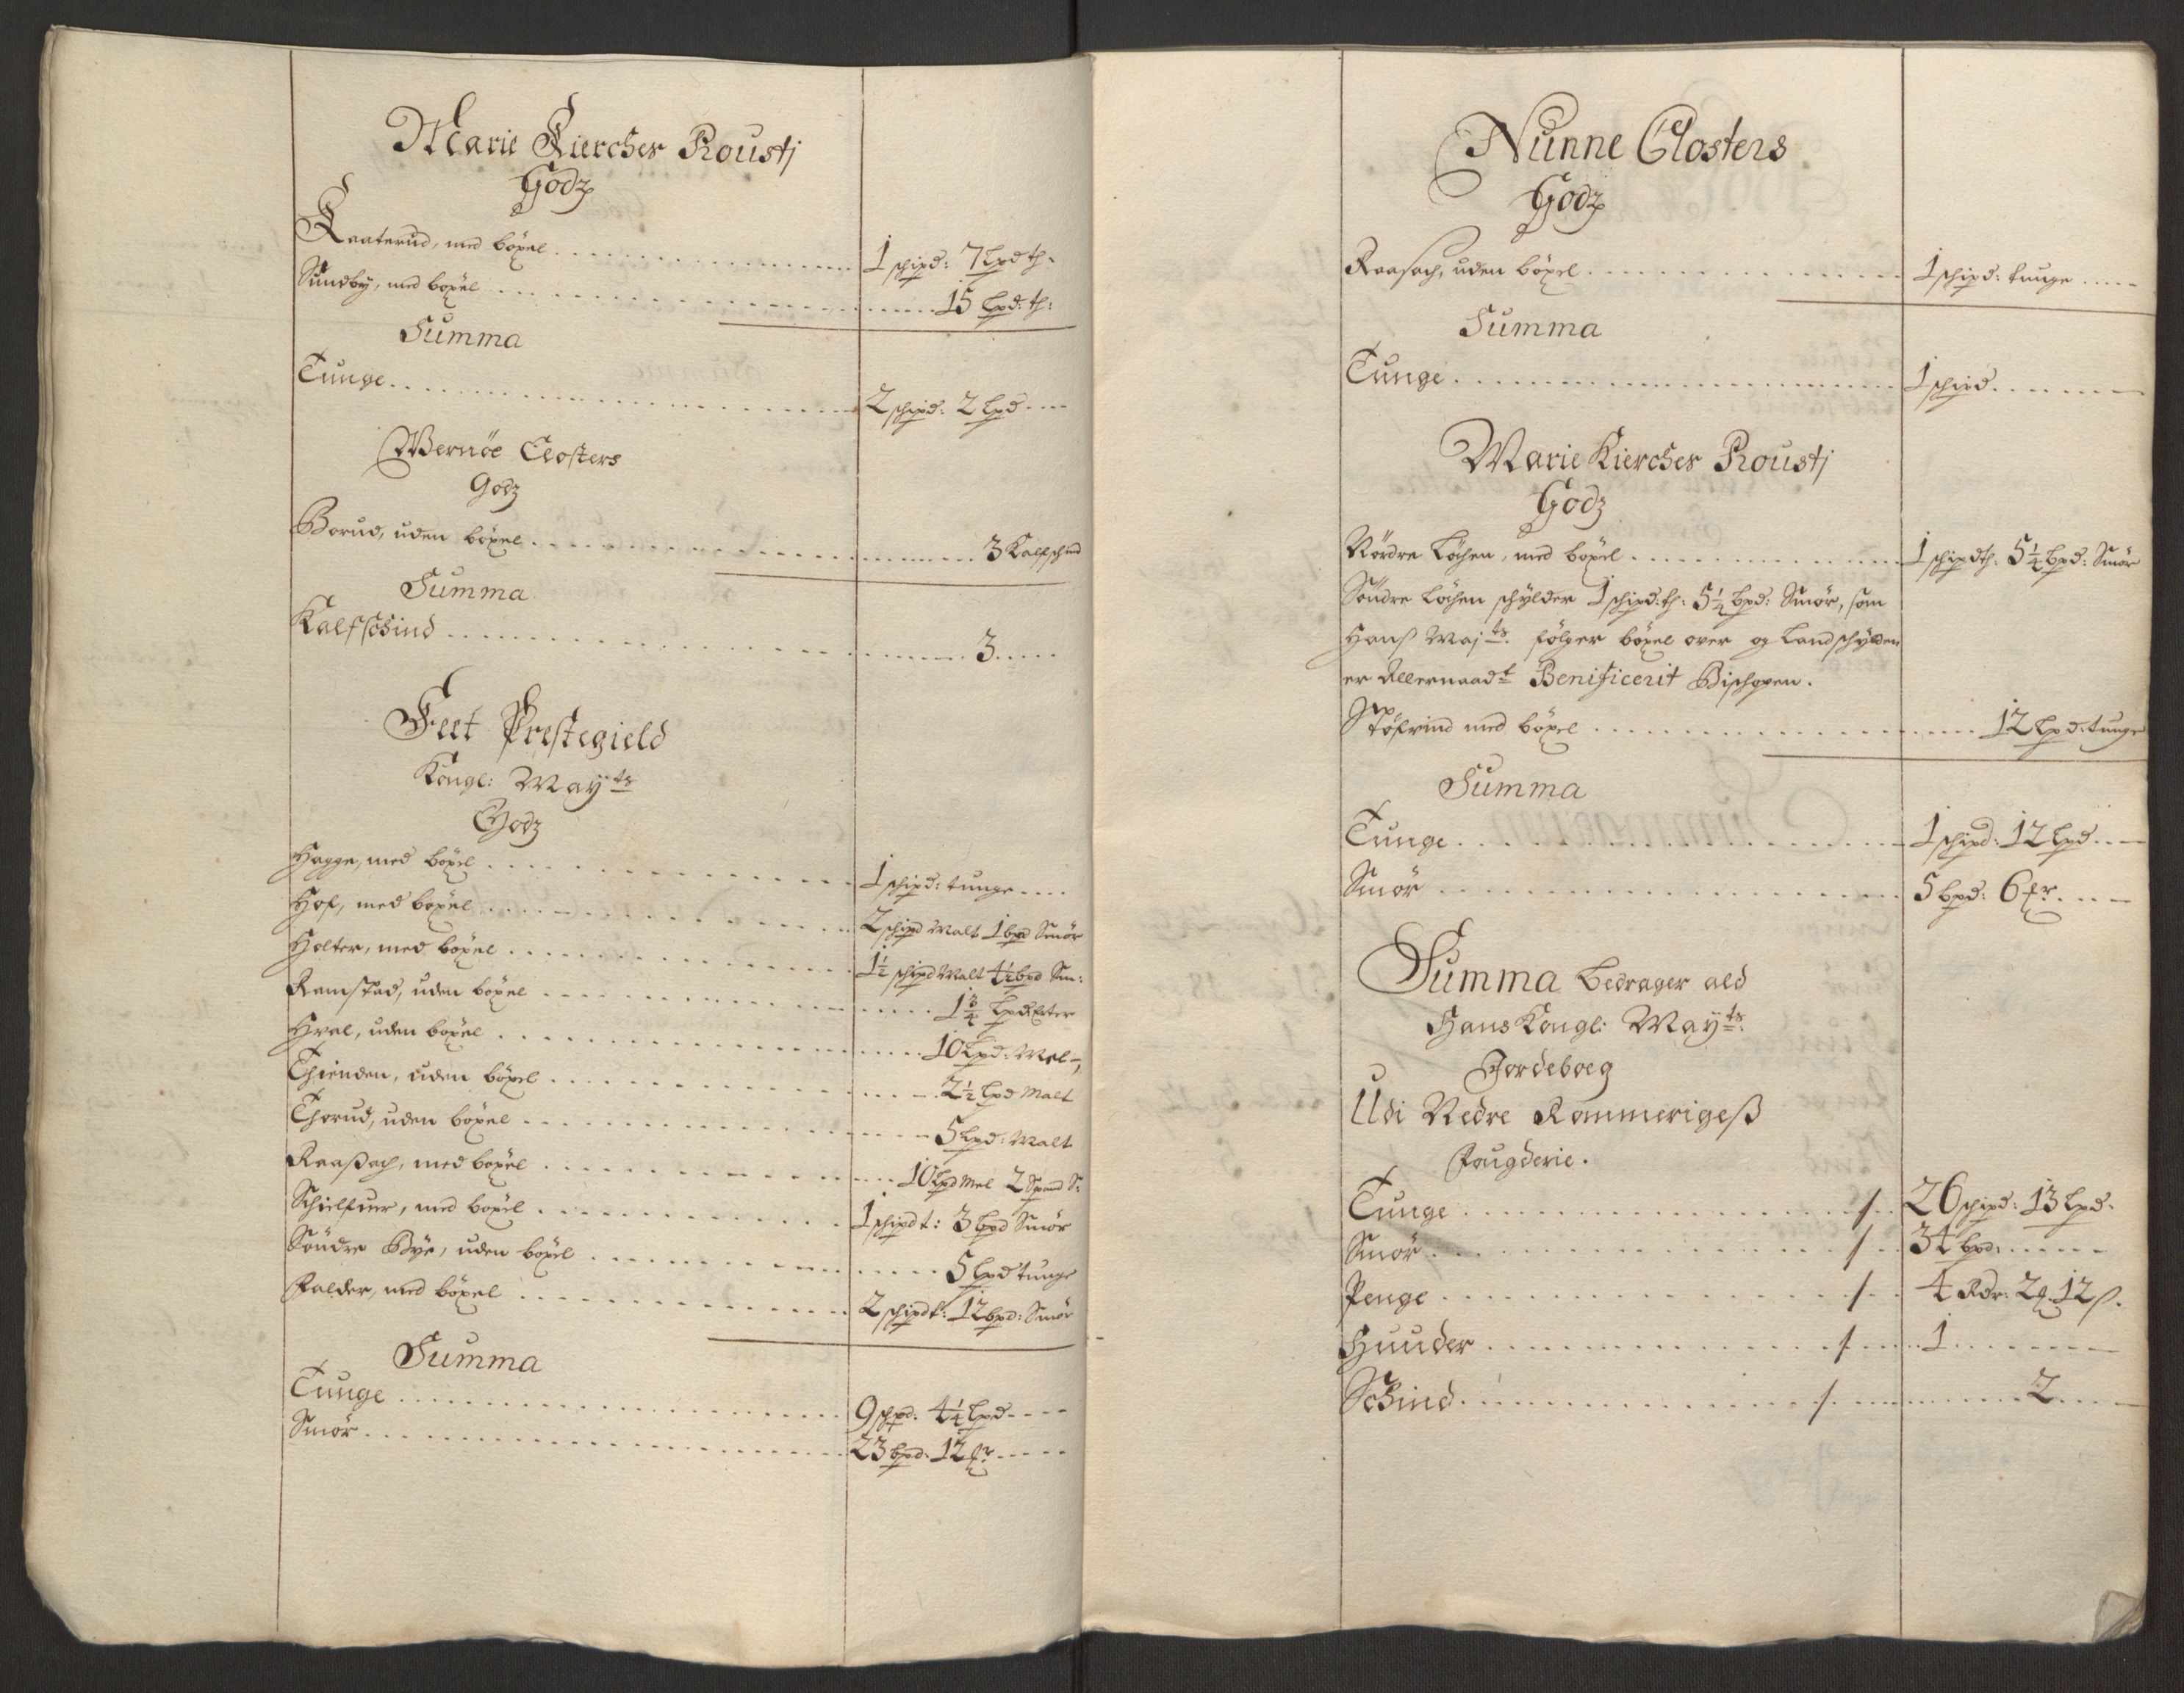 Marie Kierches Prousti
Godz
Kaaterud, med böxel 1 schipd: 7 lpd th:
Sundby, med böxel 15 lpd: th:
Summa
Tunge 2 schipd: 2 lpd
Wernöe Closters
Godz
Borud, uden böxel 3 Kalfschind
Summa
Kalfschind 3
Feet Prestegield
Kongl: May:ts
Godz
Hegge, med böxel 1 schipd: tunge
Hof, med böxel 2 schipd Malt 1 bpd Smör
Holter, med böxel 1½ schipd Malt 4½ bpd Sm:
Ramstad, uden böxel 1¾ lpd Erter
Hval, uden böxel 10 Lpd: Mel
Thienden, uden böxel 2½ lpd Malt
Thorud, uden böxel 5 Lpd: Malt
Raaßach, med böxel 10 Lpd Mel 2 Spand S:
Schielfuer, med böxel 1 schipd t: 3 bpd Smör
Söndre Bye, uden böxel 5 Lpd tunge
Falder, med böxel 2 schipd t: 12 bpd: Smör
Summa
Tunge 9 schpd: 4¼ lpd
Smör 23 bpd: 12 ℔r
Nunne Closters
Godz
Raasach, uden böxel 1 schipd: tunge
Summa
Tunge 1 schipd
Marie Kierches Prousti
Godz
Nördre Löchen, med böxel 1 schipd th: 5¼ bpd: Smör
Söndre Löchen schylder 1 schipd: th: 5¼ bpd: Smör, som
Hans Maj:ts fölger böxel over og Landschylden
er Allernaadt Benificerit Bischopen.
Töfvind med böxel 12 Lpd: tunge
Summa
Tunge 1 schipd: 12 lpd
Smör 5 bpd: 6 ℔r
Summa bedrager ald
Hans Kongl: May:ts
Jordeboeg
Udi Nedre Rommerigeß
Fougderie.
Tunge / 26 schipd: 13 Lpd:
Smör / 34 bpd:
Penge / 4 Rdr: 2 q. 12 ß.
Huuder / 1
Schind / 2